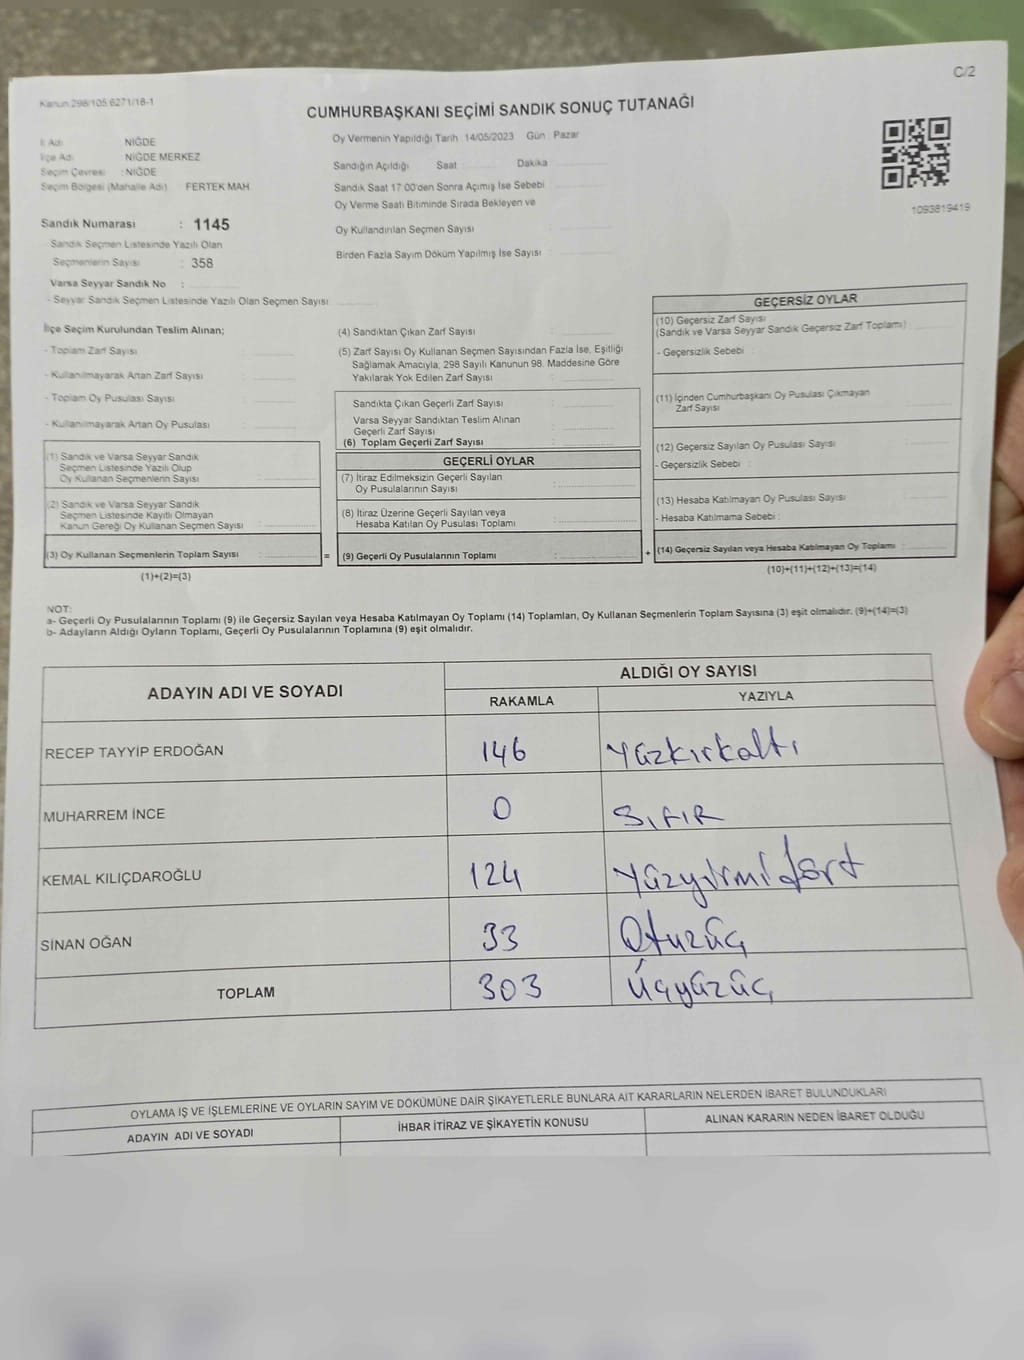 C/2
Kanun:298/105:6271/18-1
CUMHURBAŞKANI SEÇİMİ SANDIK SONUÇ TUTANAĞI
İl Adı NİĞDE
İlçe Adı NİĞDE MERKEZ
Seçim Çevresi : NİĞDE
Seçim Bölgesi (Mahalle Adı) FERTEK MAH
Sandık Numarası : 1145
- Sandık Seçmen Listesinde Yazılı Olan
Seçmenlerin Sayısı : 358
Varsa Seyyar Sandık No :
- Seyyar Sandık Seçmen Listesinde Yazılı Olan Seçmen Sayısı
Oy Vermenin Yapıldığı Tarih 14/05/2023 Gün : Pazar
Sandığın Açıldığı Saat Dakika
Sandık Saat 17:00'den Sonra Açımış İse Sebebi
Oy Verme Saati Bitiminde Sırada Bekleyen ve
Oy Kullandırılan Seçmen Sayısı :
Birden Fazla Sayım Döküm Yapılmış İse Sayısı :
1093819419
İlçe Seçim Kurulundan Teslim Alınan;
- Toplam Zarf Sayısı :
- Kullanılmayarak Artan Zarf Sayısı :
- Toplam Oy Pusulası Sayısı :
- Kullanılmayarak Artan Oy Pusulası :
(1) Sandık ve Varsa Seyyar Sandık
Seçmen Listesinde Yazılı Olup
Oy Kullanan Seçmenlerin Sayısı :
(2) Sandık ve Varsa Seyyar Sandık
Seçmen Listesinde Kayıtlı Olmayan
Kanun Gereği Oy Kullanan Seçmen Sayısı :
(3) Oy Kullanan Seçmenlerin Toplam Sayısı :
(1)+(2)=(3)
(4) Sandıktan Çıkan Zarf Sayısı :
(5) Zarf Sayısı Oy Kullanan Seçmen Sayısından Fazla İse, Eşitliği
Sağlamak Amacıyla, 298 Sayılı Kanunun 98. Maddesine Göre
Yakılarak Yok Edilen Zarf Sayısı :
Sandıkta Çıkan Geçerli Zarf Sayısı :
Varsa Seyyar Sandıktan Teslim Alınan
Geçerli Zarf Sayısı :
(6) Toplam Geçerli Zarf Sayısı :
GEÇERLİ OYLAR
(7) İtiraz Edilmeksizin Geçerli Sayılan
Oy Pusulalarının Sayısı :
(8) İtiraz Üzerine Geçerli Sayılan veya
Hesaba Katılan Oy Pusulası Toplamı :
= (9) Geçerli Oy Pusulalarının Toplamı :
GEÇERSİZ OYLAR
(10) Geçersiz Zarf Sayısı
(Sandık ve Varsa Seyyar Sandık Geçersiz Zarf Toplamı) :
- Geçersizlik Sebebi :
(11) İçinden Cumhurbaşkanı Oy Pusulası Çıkmayan
Zarf Sayısı :
(12) Geçersiz Sayılan Oy Pusulası Sayısı :
- Geçersizlik Sebebi :
(13) Hesaba Katılmayan Oy Pusulası Sayısı :
- Hesaba Katılmama Sebebi :
+ (14) Geçersiz Sayılan veya Hesaba Katılmayan Oy Toplamı :
(10)+(11)+(12)+(13)=(14)
NOT:
a- Geçerli Oy Pusulalarının Toplamı (9) ile Geçersiz Sayılan veya Hesaba Katılmayan Oy Toplamı (14) Toplamları, Oy Kullanan Seçmenlerin Toplam Sayısına (3) eşit olmalıdır. (9)+(14)=(3)
b- Adayların Aldığı Oyların Toplamı, Geçerli Oy Pusulalarının Toplamına (9) eşit olmalıdır.
ADAYIN ADI VE SOYADI ALDIĞI OY SAYISI
RAKAMLA YAZIYLA
RECEP TAYYİP ERDOĞAN 146 Yüzkırkaltı
MUHARREM İNCE 0 SIFIR
KEMAL KILIÇDAROĞLU 124 Yüzyirmidört
SİNAN OĞAN 33 Otuzüç
TOPLAM 303 Üçyüzüç
OYLAMA İŞ VE İŞLEMLERİNE VE OYLARIN SAYIM VE DÖKÜMÜNE DAİR ŞİKAYETLERLE BUNLARA AİT KARARLARIN NELERDEN İBARET BULUNDUKLARI
ADAYIN ADI VE SOYADI İHBAR İTİRAZ VE ŞİKAYETİN KONUSU ALINAN KARARIN NEDEN İBARET OLDUĞU